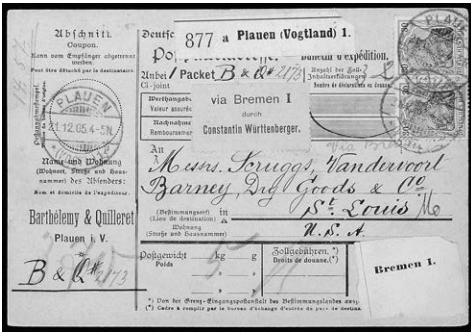 Abschnitt
Coupon.
Kann vom Empfänger abgetrennt
werden.
Peut être détaché par le destinataire.
PLAUEN
21.12.05.4-5N.
(Vogtl.)
Name und Wohnung
(Wohnort, Straße und Haus-
nummer)
des Absenders:
Nom et domicile de l'expéditeur.
Barthélemy & Quilleret
Plauen i. V.
B & Q # 2173
Deutsc
877 a Plauen (Vogtland) 1.
Po
Bulletin d'expédition.
Anbei 1 Packet B & Q # 2173
Ci-joint
Anzahl der Zoll-
Inhaltserklärungen
2
Werthangabe
Valeur assurée
Nachnahme
Remboursement
via Bremen 1
durch
Constantin Württenberger.
PLAUEN
An
A
Messrs. Scruggs, Vandervoort
Barney, Dry Goods & Co
(Bestimmungsort)
(Lieu de destination)
in
St. Louis Mo
Wohnung
(Straße und Hausnummer)
U.S.A
Postgewicht
Poids
kg
g
Zollgebühren. *)
Droits de douane. (*)
Bremen 1.
*) Von der Grenz-Eingangspostanstalt des Bestimmungslandes
(*) Cadre à remplir par le bureau d'échange d'entrée du pays de